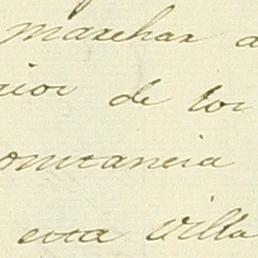 marchar a
rior de los
onstancia
esta villa